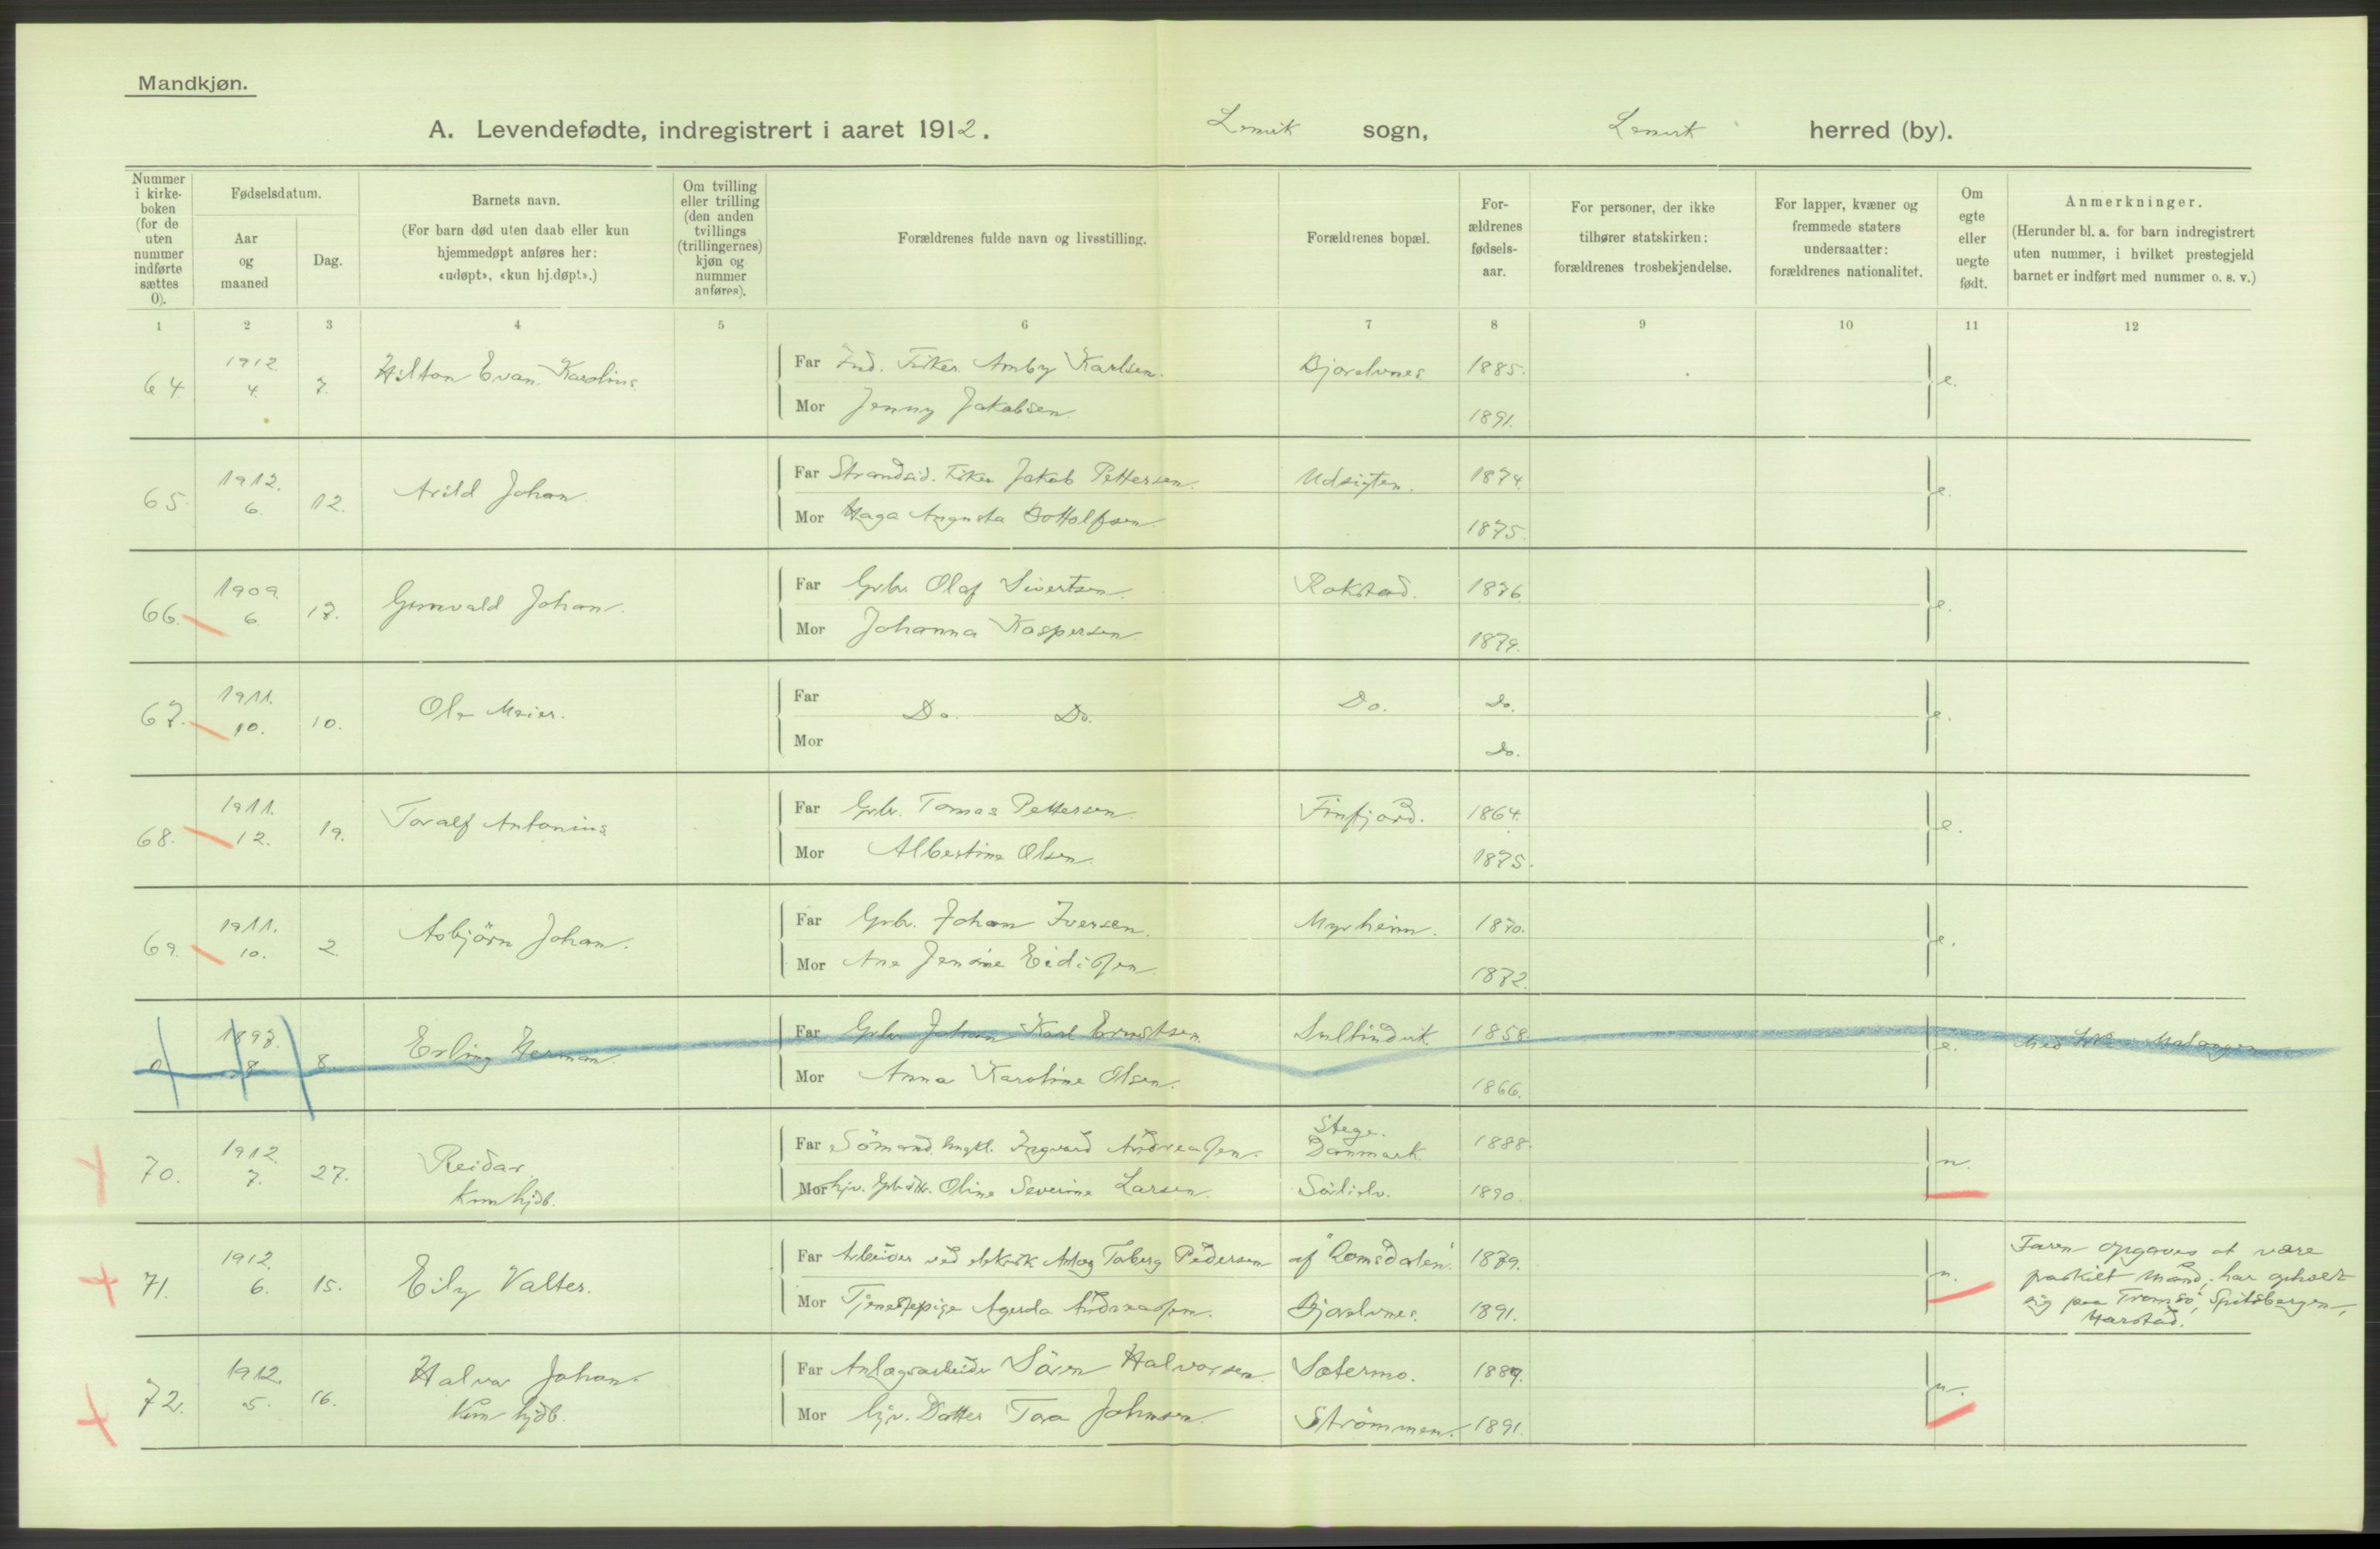 Mandkjøn.
A. Levendefødte, indregistrert i aaret 1912. Lenvik sogn, Lenvik herred (by).
Nummer i kirke-boken (for de uten nummer indførte sættes 0).
Fødselsdatum.
Aar og maaned
Dag.
Barnets navn.
(For barn død uten daab eller kun hjemmedøpt anføres her: «udøpt», «kun hj.døpt».)
Om tvilling eller trilling (den anden tvillings (trillingernes) kjøn og nummer anføres).
Forældrenes fulde navn og livsstilling.
Forældrenes bopæl.
For-ældrenes fødsels-aar.
For personer, der ikke tilhører statskirken: forældrenes trosbekjendelse.
For lapper, kvæner og fremmede staters undersaatter: forældrenes nationalitet.
Om egte eller uegte født.
Anmerkninger.
(Herunder bl. a. for barn indregistrert uten nummer, i hvilket prestegjeld barnet er indført med nummer o. s. v.)
1 2 3 4 5 6 7 8 9 10 11 12
64. 1912. 4. 7. Hilton Evan Karolius.
Far Ind. Fisker Amby Karlsen. Bjorelvnes. 1885. e.
Mor Jenny Jakobsen. 1891.
65. 1912. 6. 12. Arild Johan.
Far Strandsid. Fisker Jakob Pettersen. Udsigten. 1874. e.
Mor Haga Augusta Bottolfsen. 1875.
66. 1909. 6. 17. Gunvald Johan.
Far Grbr. Olaf Sivertsen. Rokstad. 1876. e.
Mor Johanna Kaspersen. 1879.
67. 1911. 10. 10. Ole Meier.
Far Do. Do. Do. Do. e.
Mor Do.
68. 1911. 12. 19. Toralf Antonius.
Far Grbr. Tomas Pettersen. Finfjord. 1864. e.
Mor Albertine Olsen. 1875.
69. 1911. 10. 2. Asbjörn Johan.
Far Grbr. Johan Iversen. Myrheim. 1870. e.
Mor Ane Jensine Eidissen. 1872.
0 1897. 8. 8. Erling Herman.
Far Grbr. Johan Karl Ernstsen. Sultindvik. 1858. e. Med No i Malangen
Mor Anna Karoline Olsen. 1866.
70. 1912. 7. 27. Reidar. Kun hjdb.
Far Sömand Ungkl. Ingvard Andreassen. Stege. Danmark. 1888. u.
Mor hjv. Grbdtr. Oline Severine Larsen. 1890.
71. 1912. 6. 15. Eily Valter.
Far Arbeider ved elektrisk Anlæg Torberg Pedersen af "Romsdalen". 1879. u.
Mor Tjenestepige Agerda Andreassen. Bjorelvnes. 1891.
Faren opgaves at være fraskilt mand; har opholdt sig paa Tromsö, Spitsbergen, Harstad.
72. 1912. 5. 16. Halvar Johan. Kun hjdb.
Far Anlægsarbeider Sören Halvorsen. Sætermo. 1889. u.
Mor hjv. Datter Tora Johnsen. Strömmen. 1891.